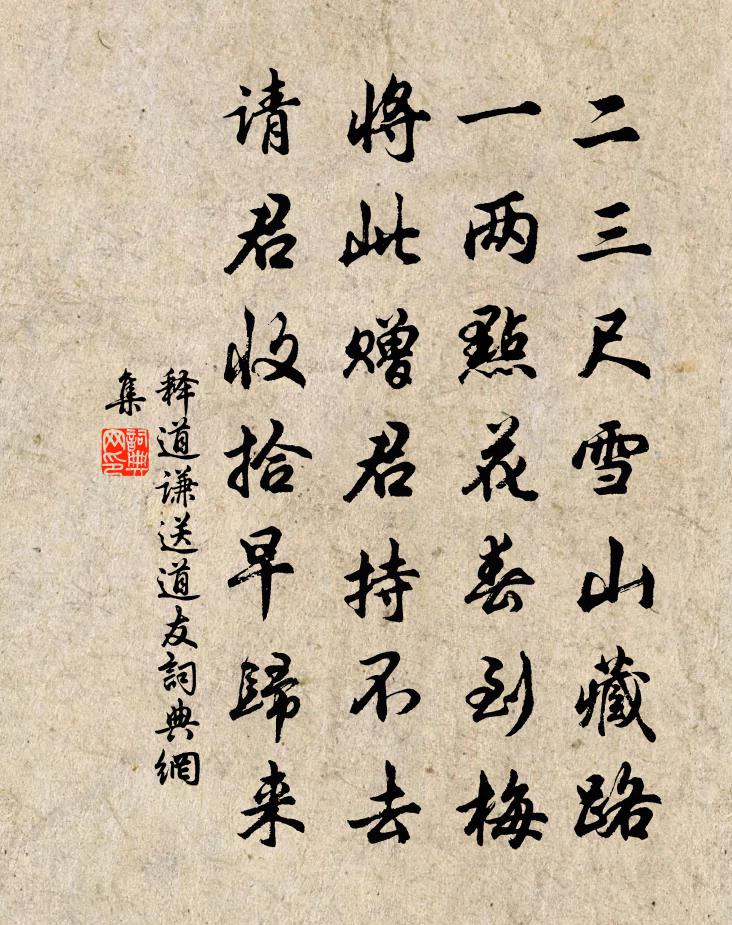 二三尺雪山藏路
一两點花春到梅
将此赠君持不去
请君收拾早歸来
释道谦送道友詞典網
集
詞典網印